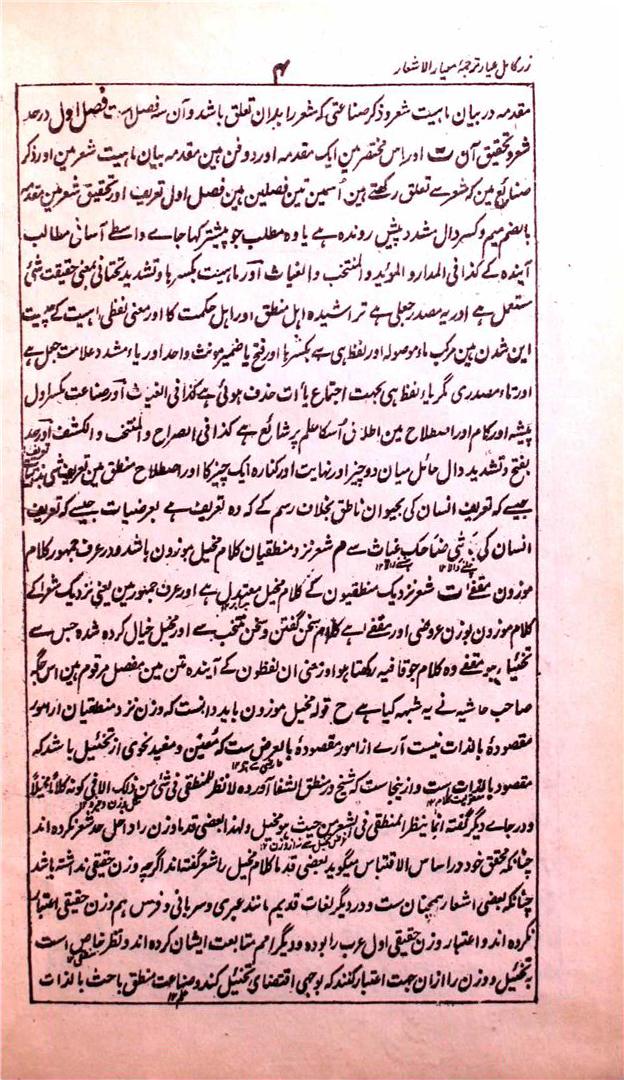 زر کامل عیار ترجمۂ معیار الاشعار
۴
مقدمہ در بیان ماہیت شعر و ذکر صناعتی کہ شعر را بدان تعلق باشد و آن سہ فصل است فصل اول در حد
شعر و تحقیق آن ت اور اس مختصر مین ایک مقدمہ اور دو فن ہین مقدمہ بیان ماہیت شعر مین اور ذکر
صنایع مین کہ شعر سے تعلق رکھتے ہین اُسمین تین فصلین ہین فصل اول تعریف اور تحقیق شعر مین مقدمہ
بالضم میم و کسر دال مشدد پیش روندہ ہے یا وہ مطلب جو پیشتر کہا جاے واسطے آسانی مطالب
آیندہ کے کذا فی المدار و الموئید و المنتخب و الغیاث اور ماہیت بکسر ہا و تشدید تحتانی بمعنی حقیقت شئ
مستعمل ہے اور یہ مصدر جعلی ہے تراشیدہ اہل منطق اور اہل حکمت کا اور معنی لفظی ماہیت کے چیست
این شدن ہین مرکب ماء موصولہ اور لفظ ہی ہے بکسر ہا اور فتح یا ضمیر مونث واحد اور یاء مشدد علامت جعل ہے
اور تاء مصدری مگر یاء لفظ ہی بجہت اجتماع یاآت حذف ہوئی ہے کذا فی الغیاث اور صناعت بکسر اول
پیشہ اور کام اور اصطلاح مین اطلاق اسکا علم پر شائع ہے کذا فی الصراح و المنتخب و الکشف اور حد
بفتح و تشدید دال حائل میان دو چیز اور نہایت اور کنارہ ایک چیز کا اور اصطلاح منطق مین تعریف شی بذاتیات
جیسے کہ تعریف انسان کی بحیوان ناطق بخلاف رسم کے کہ وہ تعریف ہے بعرضیات جیسے کہ تعریف
انسان کی ضاحک غیاث سے م شعر نزد منطقیان کلام مخیل موزون باشد و در عرف جمہور کلام
موزون مقفےٰ ت شعر نزدیک منطقیون کے کلام مخیل معتدل ہے اور عرف جمہور مین یعنی نزدیک شعرا کے
کلام موزون بوزن عروضی اور مقفے ہے کلام سخن گفتن و سخن منتخب سے اور مخیل خیال کردہ شدہ جس سے
تخئیل ہو مقفے وہ کلام جو قافیہ رکھتا ہو اور معنی ان لفظون کے آیندہ متن مین مفصل مرقوم ہین اس جگہ
صاحب حاشیہ نے یہ شبہہ کیا ہے ح قولہ مخیل موزون باید دانست کہ وزن نزد منطقیان از امور
مقصودہ بالذات نیست آرے از امور مقصودہ بالعرض ست کہ معین و مفید نحوی از تخئیل باشد کہ
مقصود بالذات ست و ازینجاست کہ شیخ در منطق الشفا آوردہ لا نظر للمنطقی فی شئ من ذلک الا فی کونہ کلاما مخیلاً
و در جاے دیگر گفتہ انما ینظر المنطقی فی الشعر من حیث ہو مخیل و لہذا بعضی قدما وزن را داخل حد شعر نکردہ اند
چنانکہ محقق خود در اساس الاقتباس میگوید بعضی قدما کلام مخیل را شعر گفتہ اند اگرچہ وزن حقیقی نداشتہ باشد
چنانکہ بعضی اشعار ہمچنان ست و در دیگر لغات قدیم مانند عبری و سریانی و فرس ہم وزن حقیقی اعتبار
نکردہ اند و اعتبار وزن حقیقی اول عرب را بودہ و دیگر امم متابعت ایشان کردہ اند و نظر خاص است
بہ تخئیل و وزن را ازان جہت اعتبار کنند کہ بوجہی اقتضای تخئیل کند و صناعت منطق باحث بالذات